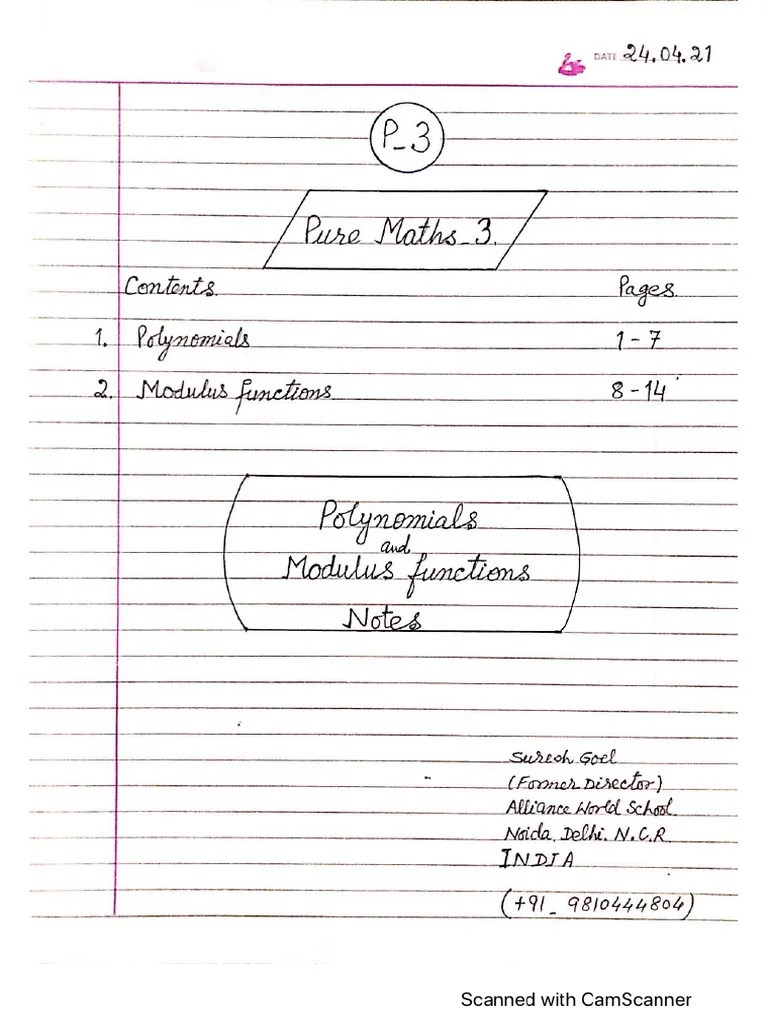 DATE 24.04.21
P_3
Pure Maths_3.
Contents. Pages.
1. Polynomials 1-7
2. Modulus functions 8-14
Polynomials
and
Modulus functions
Notes
Suresh Goel
(Former Director)
Alliance World School.
Noida, Delhi. N.C.R
INDIA
(+91_ 9810444804)
Scanned with CamScanner